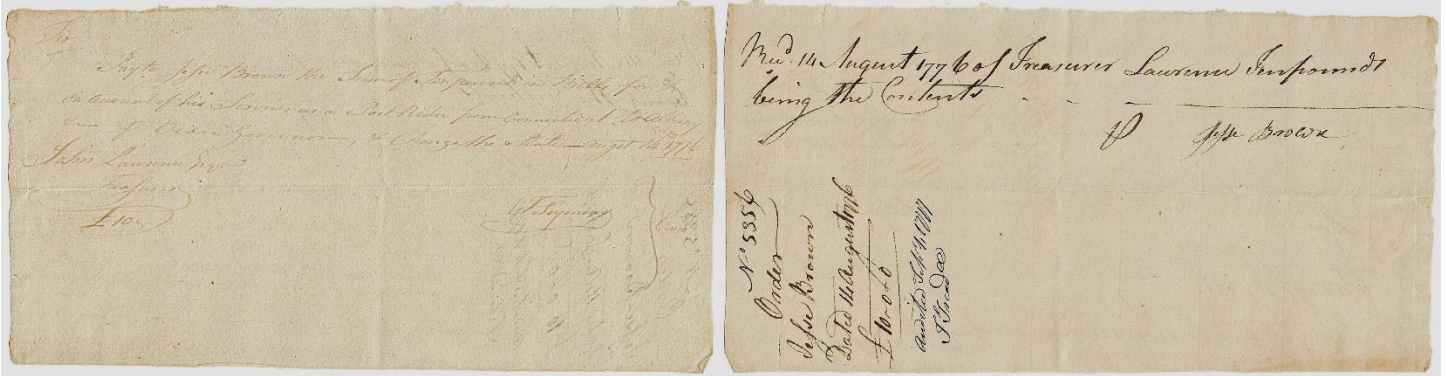 Sir
Pay to Jesse Brown the Sum of Ten pounds in Bills for &
on account of his Services as a Post Rider from Connecticut to Albany
Governor & Charge the State August 14th 1776
John Lawrence Esqr
Treasurer
£10
T Seymour
Recd. 14 August 1776 of Treasurer Lawrence Ten pounds
being the Contents - - -
Jesse Brown
No 5356
Order
Jesse Brown
Dated 14 August 1776
£10-0-0
Audited Sept 4 1777